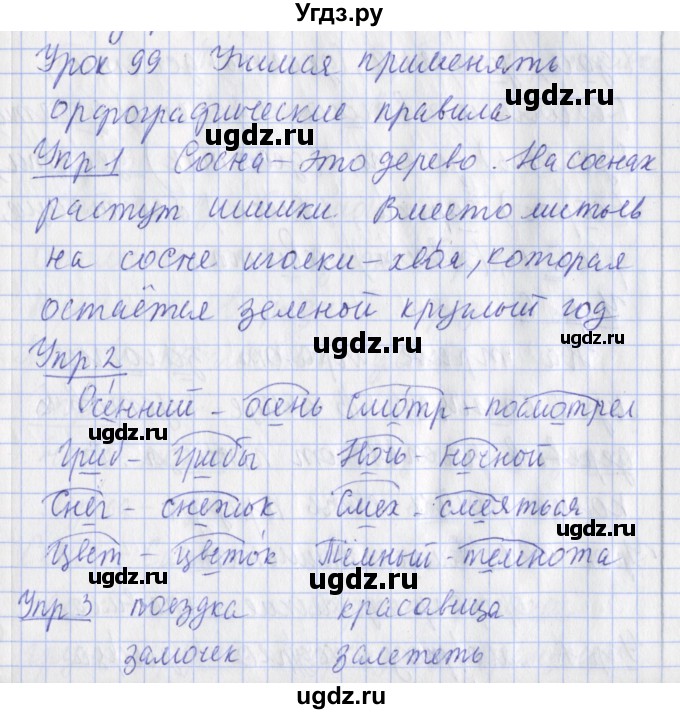 Угдз.ру
Урок 99 Учимся применять
ugdz.ru
орфографические правила
ugdz.ru
Упр 1 Сосна – это дерево. На соснах
ugdz.ru
растут шишки Вместо листьев
на сосне иголки – хвоя, которая
остаётся зеленой круглый год
ugdz.ru
Упр 2
ugdz.ru
Осенний – осень Смотр – посмотрел
ugdz.ru
Гриб – грибы Ночь – ночной
ugdz.ru
Снег – снежок Смех – смеяться
ugdz.ru
Цвет – цветок Тёмный – темнота
ugdz.ru
Упр 3 поездка красавица
ugdz.ru
замочек залететь
ugdz.ru